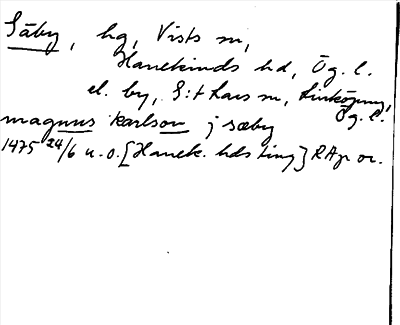 Säby, hg, Vists sn,
Hanekinds hd, Ög. l.
el. by, S:t Lars sn, Linköping,
Ög. l.
magnus karlson j sæby
1475 24/6 u.o. [Hanek. hds ting] RAp or.